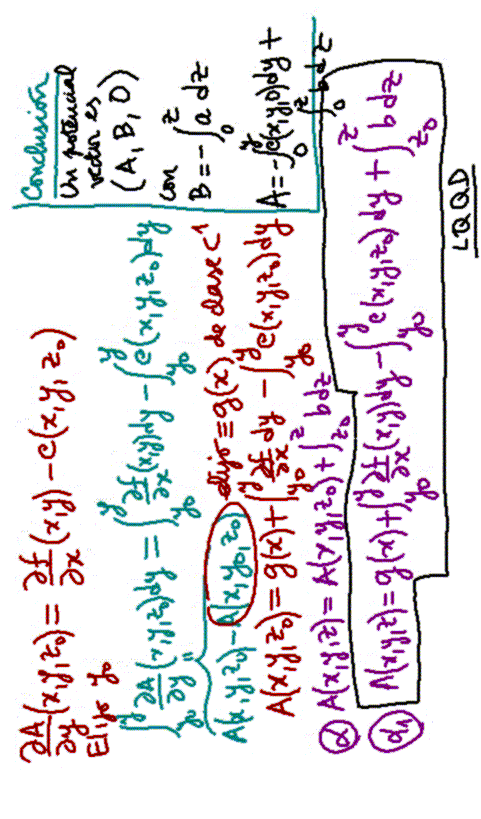 ∂A/∂y (x,y,z₀) = ∂f/∂x (x,y) − c(x,y,z₀)
Elijo y₀
∫_{y₀}^{y} ∂A/∂y (x,y,z₀)dy = ∫_{y₀}^{y} ∂f/∂x (x,y)dy − ∫_{y₀}^{y} c(x,y,z₀)dy
"
A(x,y,z₀) − A(x,y₀,z₀) elijo ≡ g(x) de clase C¹
A(x,y,z₀) = g(x) + ∫_{y₀}^{y} ∂f/∂x dy − ∫_{y₀}^{y} c(x,y,z₀)dy
α A(x,y,z) = A(x,y,z₀) + ∫_{z₀}^{z} b dz
α₁ A(x,y,z) = g(x) + ∫_{y₀}^{y} ∂f/∂x (x,y)dy − ∫_{y₀}^{y} c(x,y,z₀)dy + ∫_{z₀}^{z} b dz
LQQD
Conclusión
Un potencial
vector es
(A, B, 0)
con
B = −∫_{0}^{z} a dz
A = −∫_{0}^{y} c(x,y,0)dy +
∫_{0}^{z} b dz